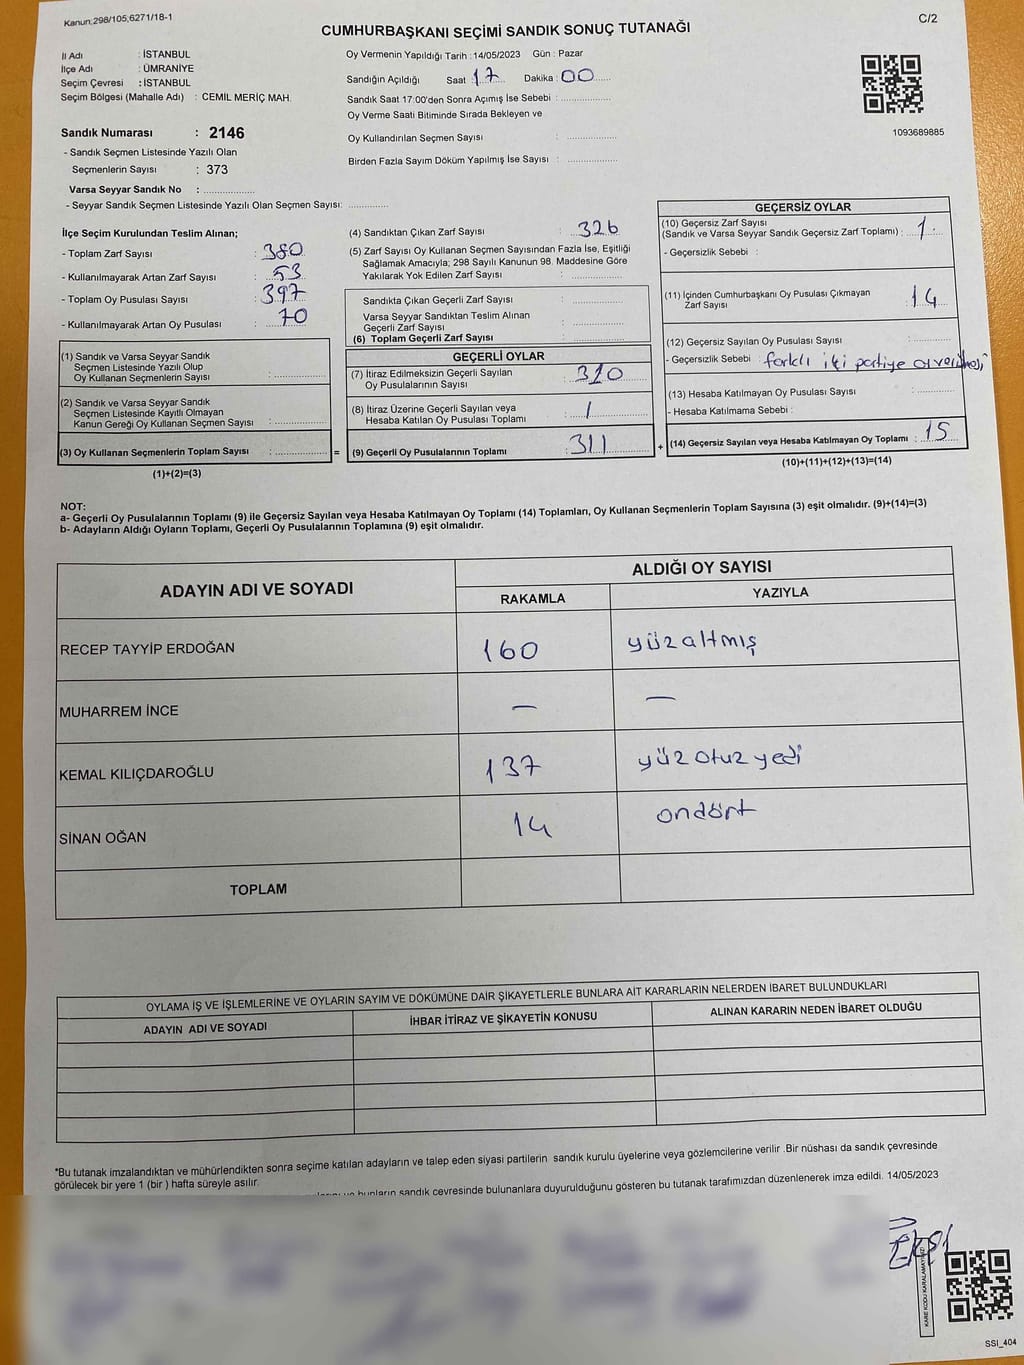 Kanun;298/105,6271/18-1
C/2
CUMHURBAŞKANI SEÇİMİ SANDIK SONUÇ TUTANAĞI
İl Adı : İSTANBUL
İlçe Adı : ÜMRANİYE
Seçim Çevresi : İSTANBUL
Seçim Bölgesi (Mahalle Adı) : CEMİL MERİÇ MAH.
Sandık Numarası : 2146
- Sandık Seçmen Listesinde Yazılı Olan
Seçmenlerin Sayısı : 373
Varsa Seyyar Sandık No : ...................
- Seyyar Sandık Seçmen Listesinde Yazılı Olan Seçmen Sayısı: ..............
Oy Vermenin Yapıldığı Tarih : 14/05/2023 Gün : Pazar
Sandığın Açıldığı Saat : 17 Dakika : 00
Sandık Saat 17:00'den Sonra Açımış İse Sebebi : ....................
Oy Verme Saati Bitiminde Sırada Bekleyen ve
Oy Kullandırılan Seçmen Sayısı : ....................
Birden Fazla Sayım Döküm Yapılmış İse Sayısı : ....................
1093689885
İlçe Seçim Kurulundan Teslim Alınan;
- Toplam Zarf Sayısı : 380
- Kullanılmayarak Artan Zarf Sayısı : 53
- Toplam Oy Pusulası Sayısı : 397
- Kullanılmayarak Artan Oy Pusulası : 70
(1) Sandık ve Varsa Seyyar Sandık
Seçmen Listesinde Yazılı Olup
Oy Kullanan Seçmenlerin Sayısı : ....................
(2) Sandık ve Varsa Seyyar Sandık
Seçmen Listesinde Kayıtlı Olmayan
Kanun Gereği Oy Kullanan Seçmen Sayısı : ....................
(3) Oy Kullanan Seçmenlerin Toplam Sayısı : .................... =
(1)+(2)=(3)
(4) Sandıktan Çıkan Zarf Sayısı : 326
(5) Zarf Sayısı Oy Kullanan Seçmen Sayısından Fazla İse, Eşitliği
Sağlamak Amacıyla; 298 Sayılı Kanunun 98. Maddesine Göre
Yakılarak Yok Edilen Zarf Sayısı : ....................
Sandıkta Çıkan Geçerli Zarf Sayısı : ....................
Varsa Seyyar Sandıktan Teslim Alınan
Geçerli Zarf Sayısı : ....................
(6) Toplam Geçerli Zarf Sayısı :
GEÇERLİ OYLAR
(7) İtiraz Edilmeksizin Geçerli Sayılan
Oy Pusulalarının Sayısı : 310
(8) İtiraz Üzerine Geçerli Sayılan veya
Hesaba Katılan Oy Pusulası Toplamı : 1
(9) Geçerli Oy Pusulalarının Toplamı : 311 +
GEÇERSİZ OYLAR
(10) Geçersiz Zarf Sayısı
(Sandık ve Varsa Seyyar Sandık Geçersiz Zarf Toplamı) : 1
- Geçersizlik Sebebi :
(11) İçinden Cumhurbaşkanı Oy Pusulası Çıkmayan
Zarf Sayısı : 14
(12) Geçersiz Sayılan Oy Pusulası Sayısı : ...............
- Geçersizlik Sebebi : farklı iki partiye oy verilmesi
(13) Hesaba Katılmayan Oy Pusulası Sayısı : ...............
- Hesaba Katılmama Sebebi :
(14) Geçersiz Sayılan veya Hesaba Katılmayan Oy Toplamı : 15
(10)+(11)+(12)+(13)=(14)
NOT:
a- Geçerli Oy Pusulalarının Toplamı (9) ile Geçersiz Sayılan veya Hesaba Katılmayan Oy Toplamı (14) Toplamları, Oy Kullanan Seçmenlerin Toplam Sayısına (3) eşit olmalıdır. (9)+(14)=(3)
b- Adayların Aldığı Oyların Toplamı, Geçerli Oy Pusulalarının Toplamına (9) eşit olmalıdır.
ADAYIN ADI VE SOYADI
ALDIĞI OY SAYISI
RAKAMLA YAZIYLA
RECEP TAYYİP ERDOĞAN 160 yüzaltmış
MUHARREM İNCE — —
KEMAL KILIÇDAROĞLU 137 yüz otuz yedi
SİNAN OĞAN 14 ondört
TOPLAM
OYLAMA İŞ VE İŞLEMLERİNE VE OYLARIN SAYIM VE DÖKÜMÜNE DAİR ŞİKAYETLERLE BUNLARA AİT KARARLARIN NELERDEN İBARET BULUNDUKLARI
ADAYIN ADI VE SOYADI İHBAR İTİRAZ VE ŞİKAYETİN KONUSU ALINAN KARARIN NEDEN İBARET OLDUĞU
*Bu tutanak imzalandıktan ve mühürlendikten sonra seçime katılan adayların ve talep eden siyasi partilerin sandık kurulu üyelerine veya gözlemcilerine verilir .Bir nüshası da sandık çevresinde
görülecek bir yere 1 (bir ) hafta süreyle asılır.
bunların sandık çevresinde bulunanlara duyurulduğunu gösteren bu tutanak tarafımızdan düzenlenerek imza edildi. 14/05/2023
KARE KODU KARALAMAYINIZ!
SSI_404